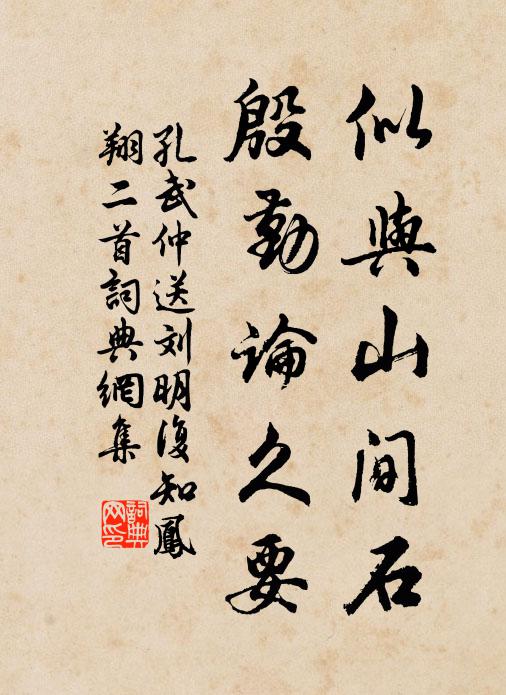 似與山间石
殷勤論久要
孔武仲送刘明復知鳳
翔二首詞典網集
詞典
网印